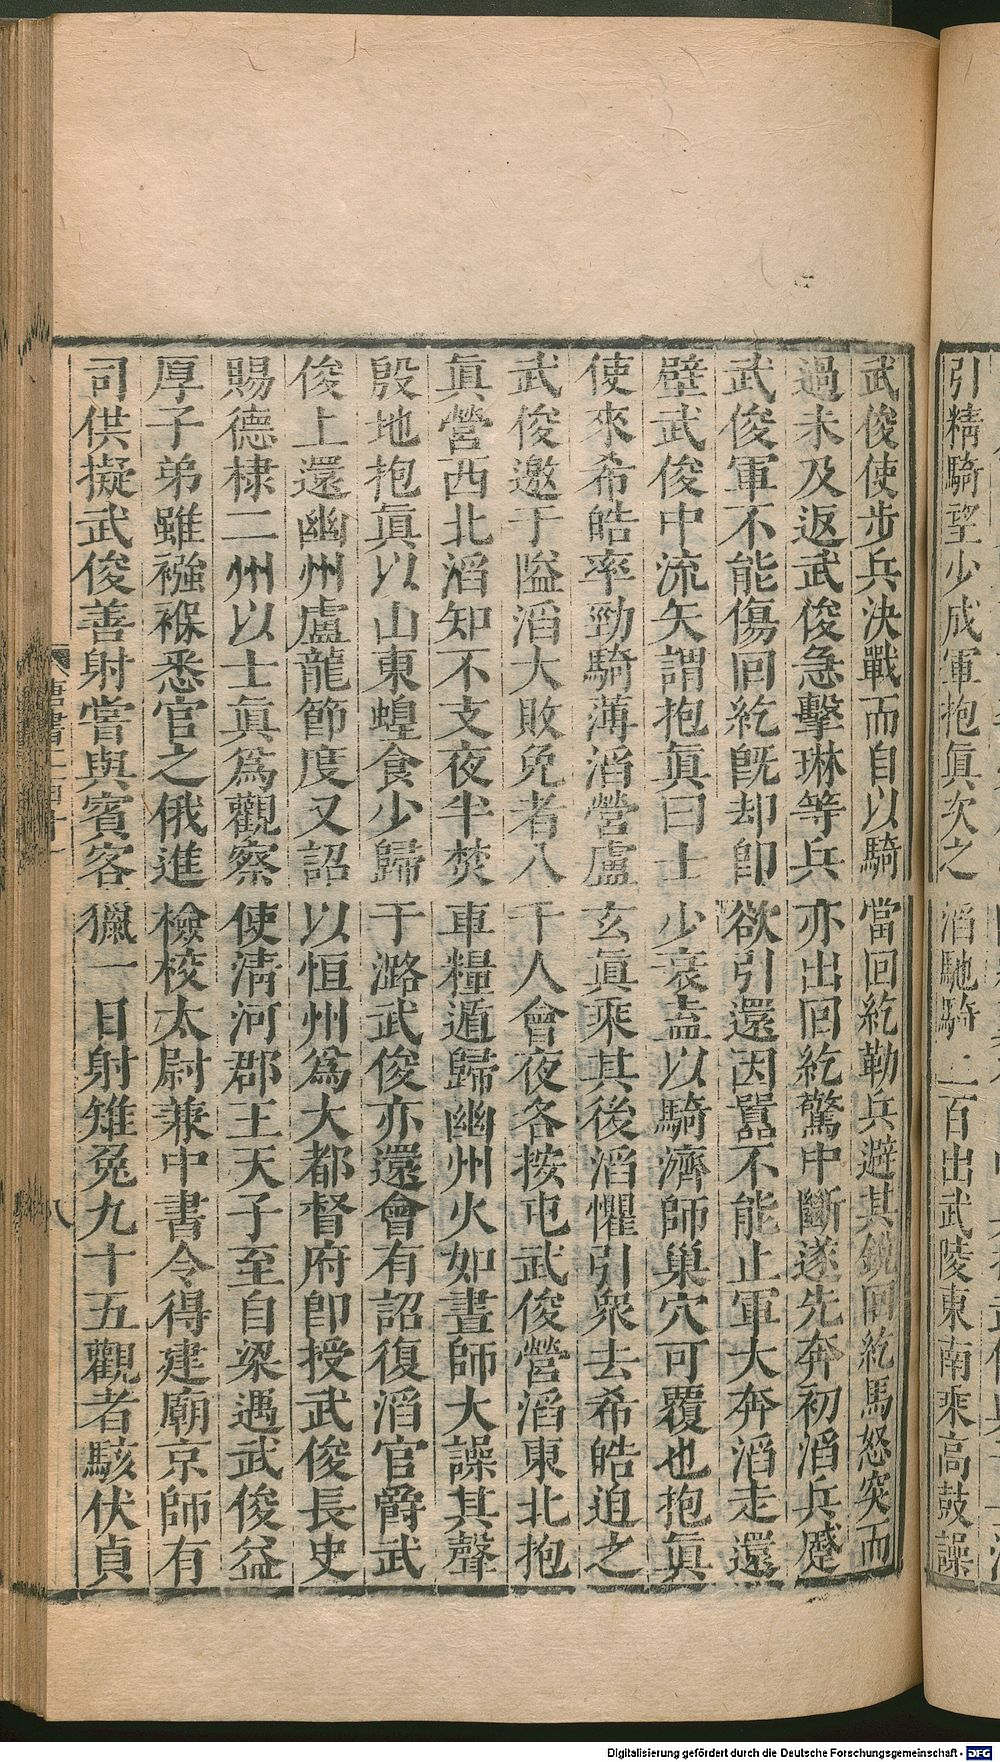 引精騎望少成軍抱眞次之滔馳騎二百出武陵東南乘高鼓譟
武俊使步兵決戰而自以騎當回紇勒兵避其銳回紇馬怒突而
過未及返武俊急擊琳等兵亦出回紇驚中斷遂先奔初滔兵蹙
武俊軍不能傷回紇旣却卽欲引還因囂不能止軍大奔滔走還
壁武俊中流矢謂抱眞曰士少衰盍以騎濟師巢穴可覆也抱眞
使來希皓率勁騎薄滔營盧玄眞乘其後滔懼引衆去希皓迫之
武俊邀于隘滔大敗免者八千人會夜各按屯武俊營滔東北抱
眞營西北滔知不支夜半焚車糧遁歸幽州火如晝師大譟其聲
殷地抱眞以山東蝗食少歸于潞武俊亦還會有詔復滔官爵武
俊上還幽州盧龍節度又詔以恒州爲大都督府卽授武俊長史
賜德棣二州以士眞爲觀察使淸河郡王天子至自梁遇武俊益
厚子弟雖襁褓悉官之俄進檢校太尉兼中書令得建廟京師有
司供擬武俊善射嘗與賓客獵一日射雉兔九十五觀者駭伏貞
八
Digitalisierung gefördert durch die Deutsche Forschungsgemeinschaft - DFG